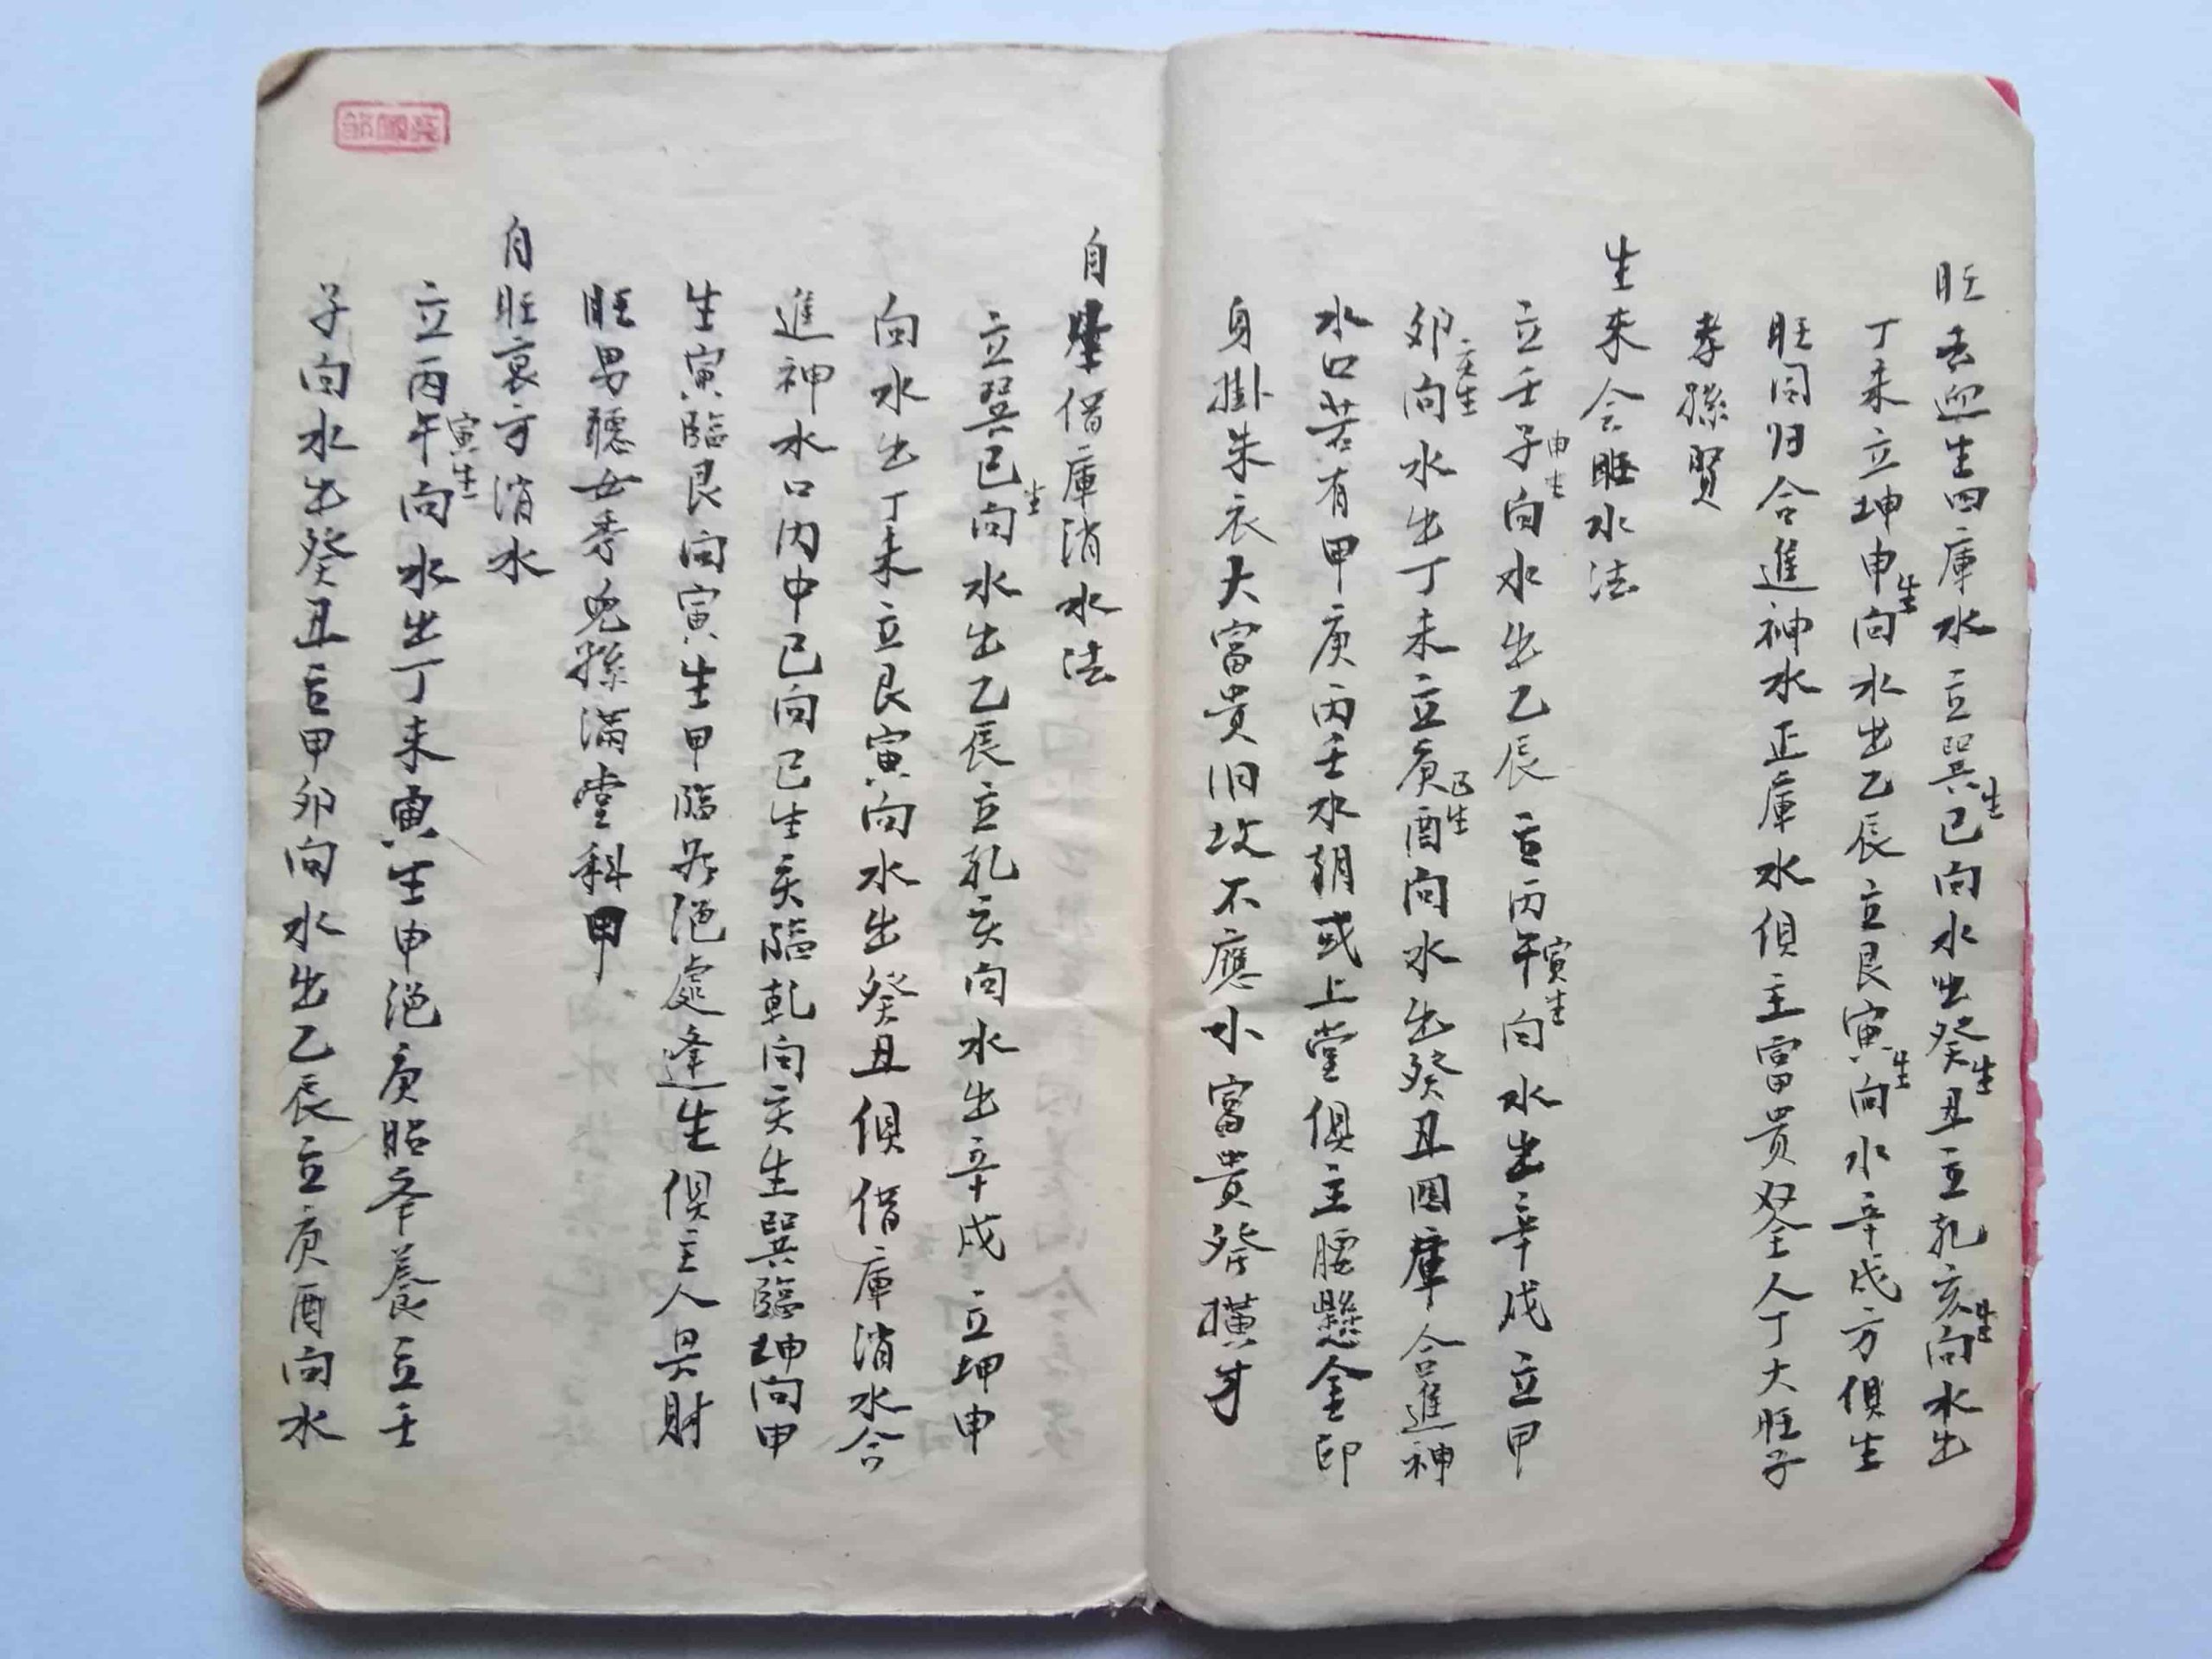 旺去迎生四庫水立巽巳生向水出癸生丑立乹亥生向水出
丁未立坤申生向水出乙辰立艮寅生向水辛戌方俱生
旺同归合進神水正庫水俱主富贵双全人丁大旺子
孝孫贤
生来会旺水法
立壬子申生向水出乙辰立丙午寅生向水出辛戌立甲
卯亥生向水出丁未立庚酉巳生向水出癸丑四庫合進神
水口若有甲庚丙壬水朝或上堂俱主腰懸金印
身掛朱衣大富貴旧坟不應小富貴發橫才
自生借庫消水法
立巽巳生向水出乙辰立乹亥向水出辛戌立坤申
向水出丁未立艮寅向水出癸丑俱借庫消水合
進神水口内中巳向巳生亥臨乾向亥生巽臨坤向申
生寅臨艮向寅生甲臨絕處逢生俱主人兴財
旺男聰女秀兒孫滿堂科甲
自旺衰方消水
立丙午寅生向水出丁未寅生申絕庚胎辛養立壬
子向水出癸丑立甲卯向水出乙辰立庚酉向水